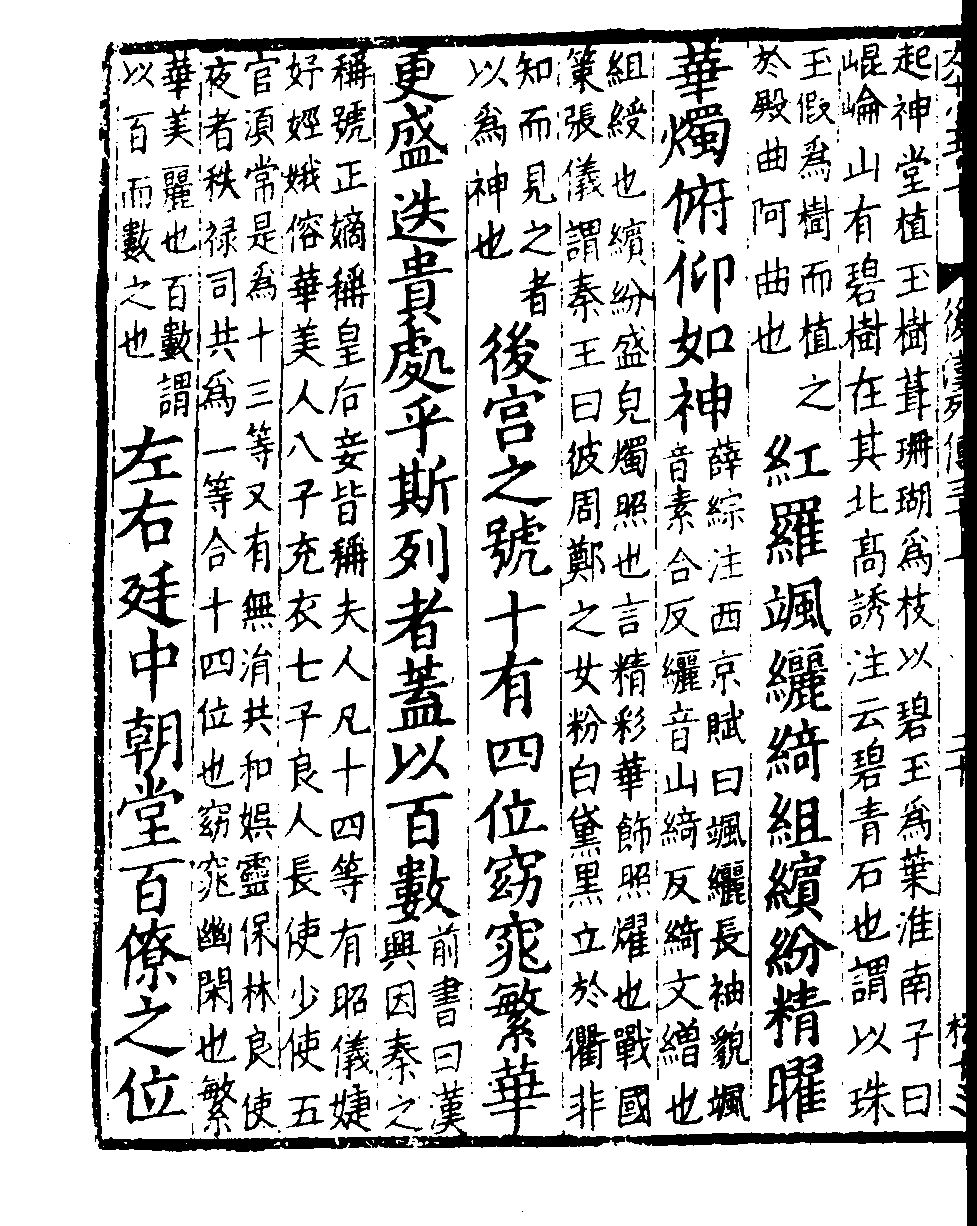 起神堂植玉樹葺珊瑚爲枝以碧玉爲葉淮南子曰
崐崘山有碧樹在其北高誘注云碧青石也謂以珠
玉假爲樹而植之
於殿曲阿曲也
紅羅颯纚綺組繽紛精曜
華燭俯仰如神
薛綜注西京賦曰颯纚長袖貌颯
音素合反纚音山綺反綺文繒也
組綬也繽紛盛皃燭照也言精彩華飾照燿也戰國
策張儀謂秦王曰彼周鄭之女粉白黛黑立於衢非
知而見之者
以爲神也
後宮之號十有四位窈窕繁華
更盛迭貴處乎斯列者蓋以百數
前書曰漢
興因秦之
稱號正嫡稱皇后妾皆稱夫人凡十四等有昭儀婕
妤娙娥傛華美人八子充衣七子良人長使少使五
官湏常是爲十三等又有無涓共和娛靈保林良使
夜者秩禄司共爲一等合十四位也窈窕幽閑也繁
華美麗也百數謂
以百而數之也
左右廷中朝堂百僚之位